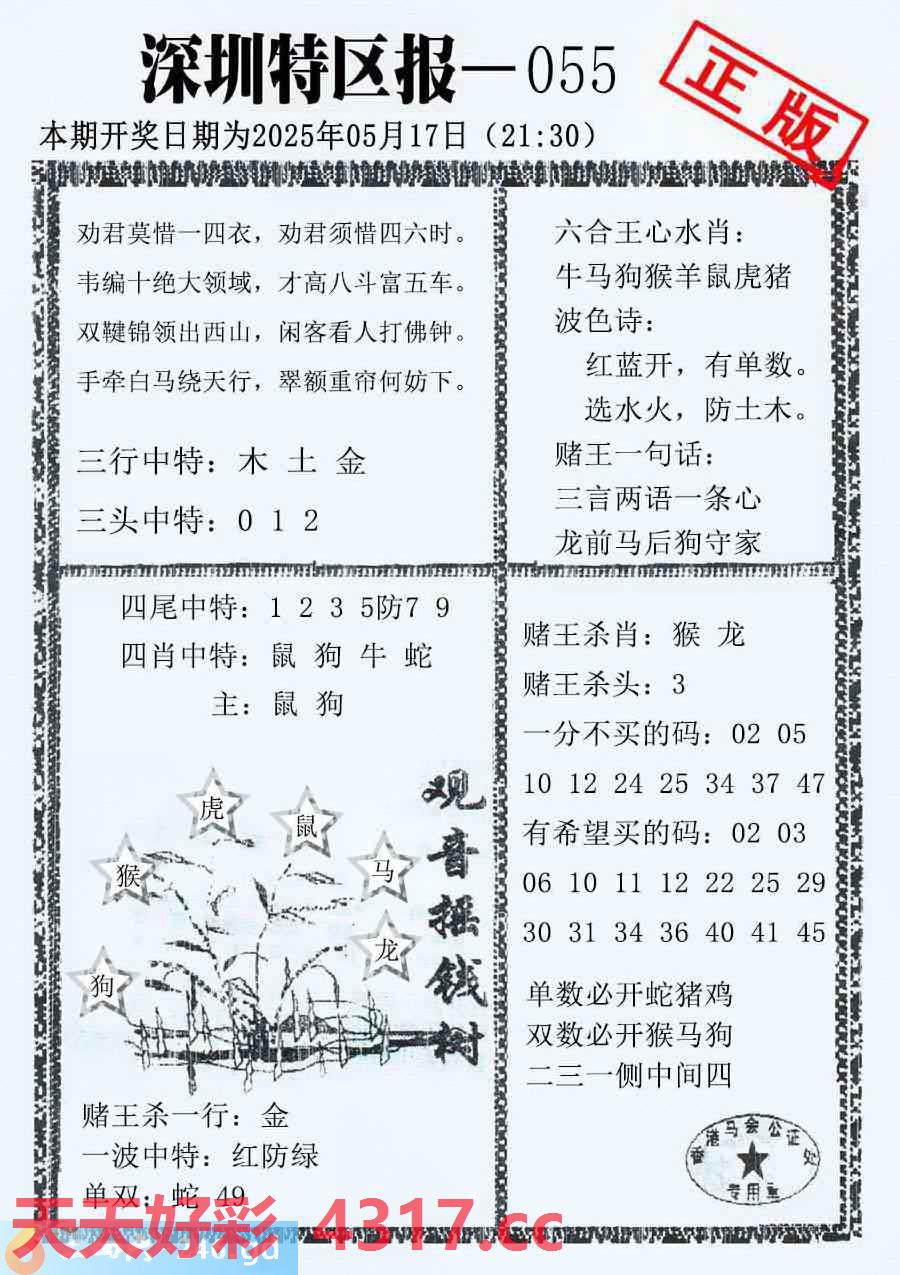 深圳特区报—055
正版
本期开奖日期为2025年05月17日（21:30）
劝君莫惜一四衣，劝君须惜四六时。
韦编十绝大领域，才高八斗富五车。
双鞬锦领出西山，闲客看人打佛钟。
手牵白马绕天行，翠额重帘何妨下。
三行中特：木 土 金
三头中特：0 1 2
六合王心水肖：
牛马狗猴羊鼠虎猪
波色诗：
红蓝开，有单数。
选水火，防土木。
赌王一句话：
三言两语一条心
龙前马后狗守家
四尾中特：1 2 3 5防7 9
四肖中特：鼠 狗 牛 蛇
主：鼠 狗
观音摇钱树
虎
鼠
猴
马
龙
狗
赌王杀一行：金
一波中特：红防绿
单双：蛇 49
赌王杀肖：猴 龙
赌王杀头：3
一分不买的码：02 05
10 12 24 25 34 37 47
有希望买的码：02 03
06 10 11 12 22 25 29
30 31 34 36 40 41 45
单数必开蛇猪鸡
双数必开猴马狗
二三一侧中间四
香港马会公证处
专用章
天天好彩 4317.cc